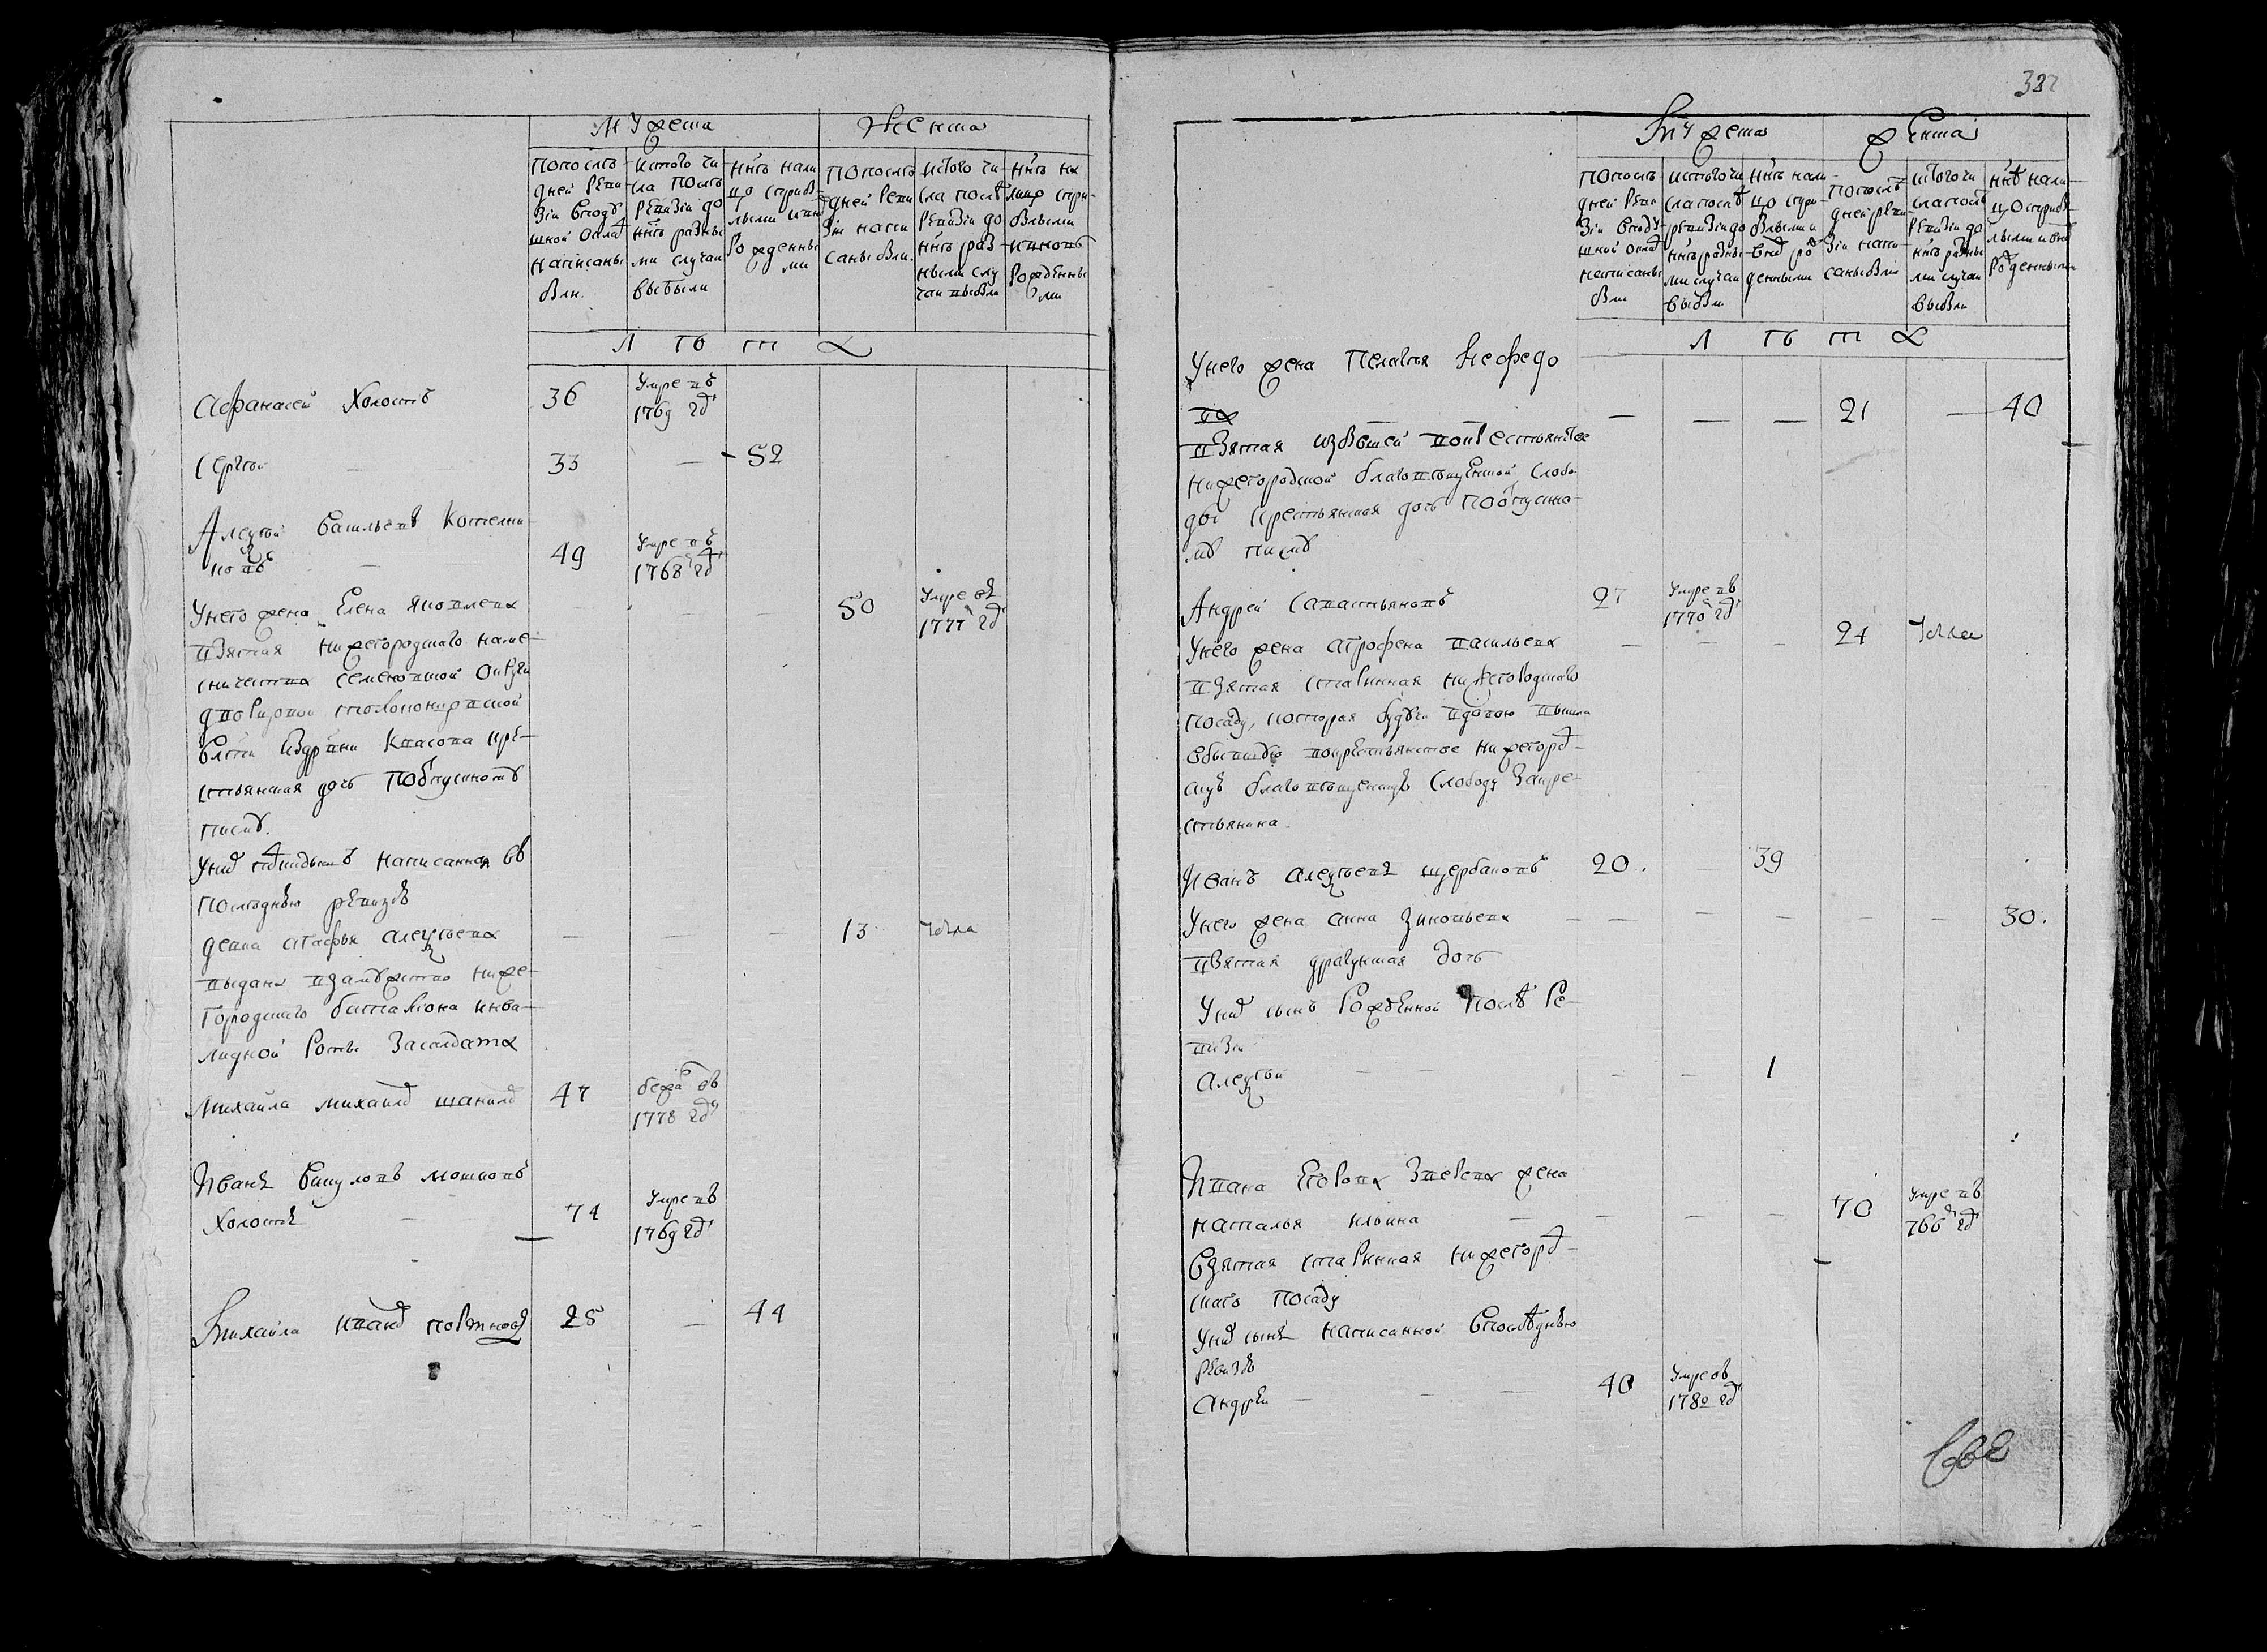 Мужеска
Женска
Попослѣ
дней реви
зіи вподу
шной окла
написаны
были.
истого чи
сла послѣ
ревизіи до
нн̃ѣ разны
ми случаи
выбыли
нн̃ѣ нали
цо сприб
лыми ивнов
рожденны
ми
Попослѣ
дней реви
зіи напи
саны были.
истого чи
сла послѣ
ревизіи до
нн̃ѣ раз
ными слу
чаи выбыли
нн̃ѣ на
лицо спри
былыми
ивновь
рожденны
ми
Л ѣ т а
Афанасей Холостъ 36 Умре въ
1769 гд
Сергей 33 — 52
Алеѯѣй Васильевъ Котелни
ковъ 49 Умре въ
1768 гд
Унего жена Елена Яковлева 50 Умре въ
1777 гд
взятая Нижегородскаго наме
сничества Семеновской округи
дворцовой Толоконцовской
крестьянская дочь поотпускному
писму.
Унихъ написанная въ
последнюю ревизью
девка Агафья Алеѯѣева — — — 13
выдана взамужство Ниже
городскаго баталіона инва
лидной роты засолдата
Михайла Михайловъ 47 бежалъ въ
1778 гд
Иванъ Викуловъ Мошковъ
Холостъ 74 Умре въ
1769 гд
Михайла Ивановъ 25 — 44
322
Мужеска
Женска
Попослѣ
дней реви
зіи вподу
шной окла
написаны
были
истого чи
сла послѣ
ревизіи до
нн̃ѣ разны
ми случаи
выбыли
нн̃ѣ нали
цо спри
былыми и
внов ро
жденными
Попослѣ
дней реви
зіи напи
саны были
истого чи
сла послѣ
ревизіи до
нн̃ѣ разны
ми случаи
выбыли
нн̃ѣ нали
цо сприб
лыми ивнов
рожденными
Л ѣ т а
Унего жена Пелагея Нефедо
ва — — — 21 — 40
взятая избывшей вовкрестьянстве
Нижегородской Благовѣщенской слобо
ды крестьянская дочь поотпускно
му писму
Андрей Савастьяновъ 27 Умре въ
1770 гд
Унего жена Аграфена Васильева — — — 24
взятая старинная Нижегородскаго
посаду, которая будучи вдовою вышла
вбывшую вокрестьянстве Нижегород
скую Благовѣщенскую слободу закре
стьянина.
Иванъ Алеѯѣевъ Щербаковъ 20. — 39
Унего жена Анна Зиновьева — — — — — 30.
взятая драгунская дочь
Унихъ сынъ рожденной послѣ ре
визіи
Алеѯѣй — — 1
Ивана Егорова Зверева жена
Наталья Ильина — — — — 70 Умре въ
766 гд
взятая старинная Нижегород
скаго посаду
Унихъ сынъ написанной впослѣднюю
ревизью
Андрей — 40 Умре въ
1782 гд